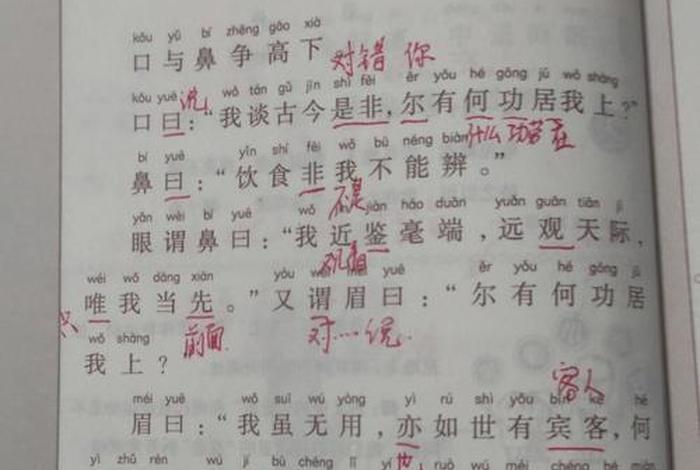 kǒu yǔ bí zhēng gāo xià
口与鼻争高下
对错 你
kǒu yuē wǒ tán gǔ jīn shì fēi ěr yǒu hé gōng jū wǒ shàng
口曰：“我谈古今是非，尔有何功居我上？”
说
什么功劳在
bí yuē yǐn shí fēi wǒ bù néng biàn
鼻曰：“饮食非我不能辨。”
不是
yǎn wèi bí yuē wǒ jìn jiàn háo duān yuǎn guān tiān jì
眼谓鼻曰：“我近鉴毫端，远观天际，
观看
wéi wǒ dāng xiān yòu wèi méi yuē ěr yǒu hé gōng jū
唯我当先。”又谓眉曰：“尔有何功居
只 前面 对…说
wǒ shàng
我上？
客人
méi yuē wǒ suī wú yòng yì rú shì yǒu bīn kè hé
眉曰：“我虽无用，亦如世有宾客，何
也
yì zhǔ rén wú jí bù chéng lǐ yí ruò wú méi chéng hé miàn